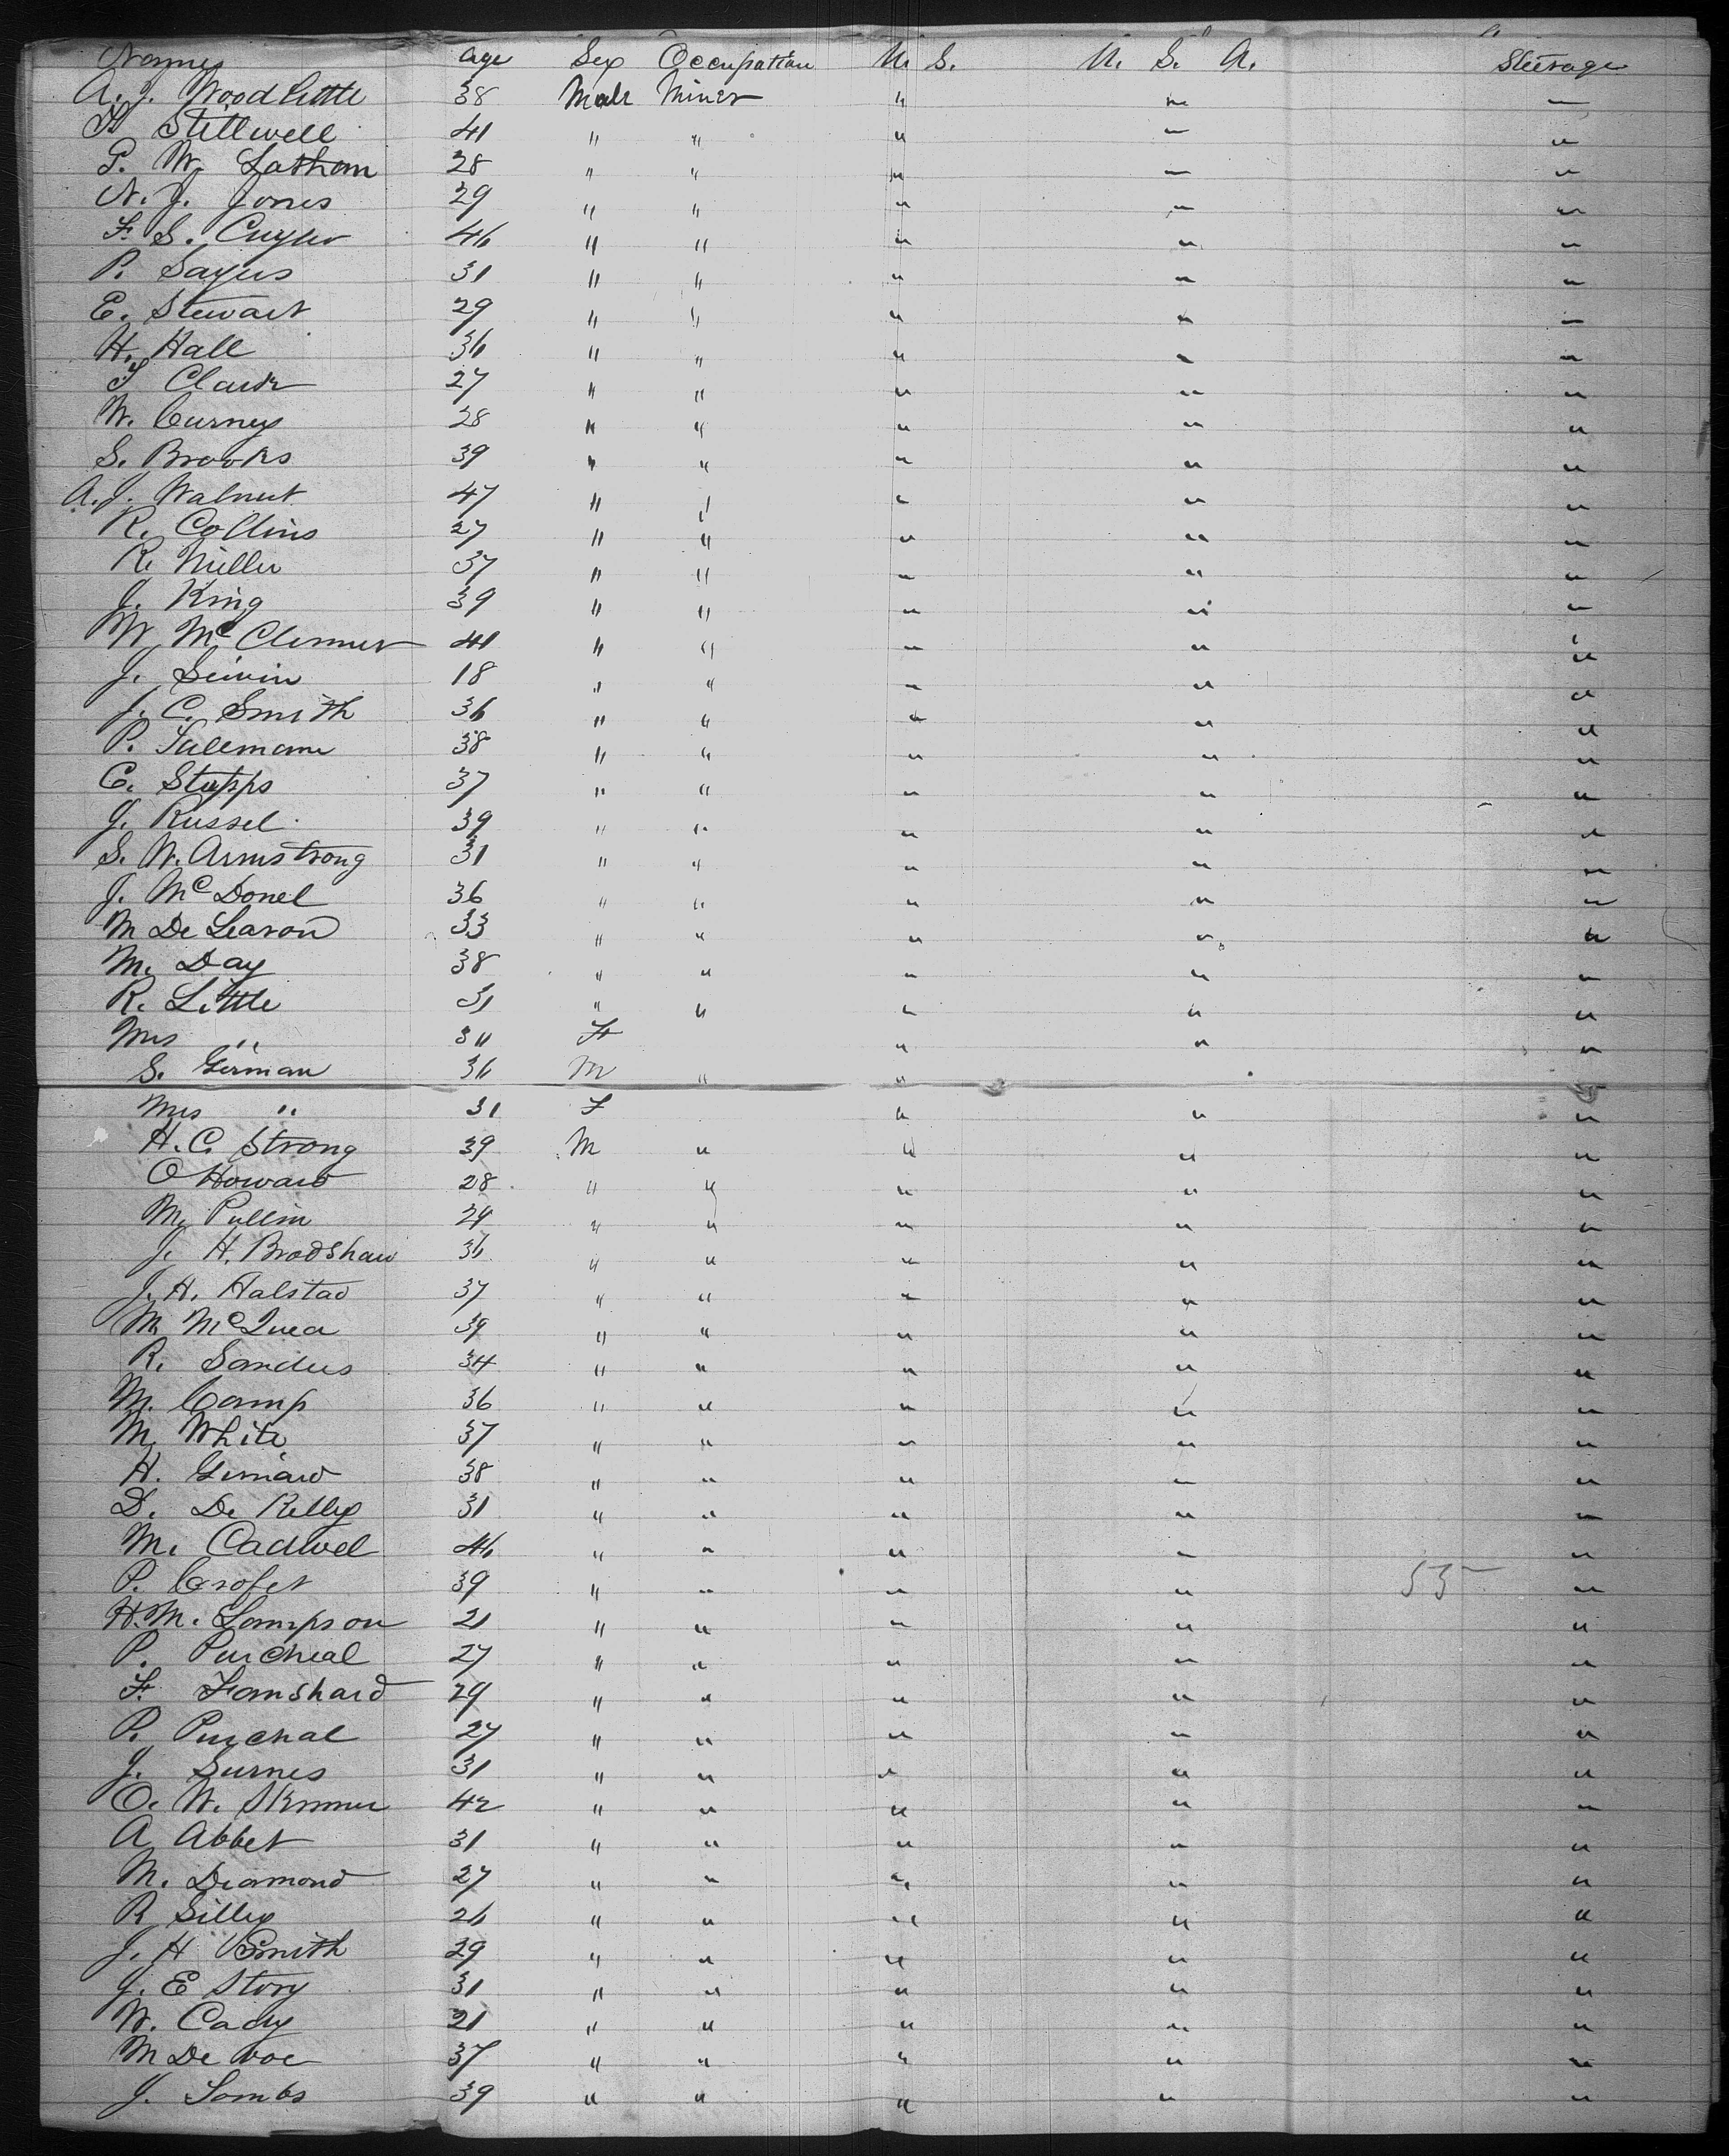 Names Age Sex Occupation U. S. U. S. A. Steerage
A. J. Woodlittle 38 Male Miner " " "
H Stillwell 41 " " " " "
P. W. Lathom 28 " " " " "
N. J. Jones 29 " " " " "
F. S. Cuyler 46 " " " " "
P. Sayers 31 " " " " "
E. Stewart 29 " " " " "
H. Hall 36 " " " " "
Clark 27 " " " " "
W. Curney 28 " " " " "
S. Brooks 39 " " " " "
A. J. Walnut 47 " " " " "
R. Collins 27 " " " " "
R. Miller 37 " " " " "
J. King 39 " " " " "
W McClenner 41 " " " " "
J. 18 " " " " "
J. C. Smith 36 " " " " "
P. Tallemann 38 " " " " "
C. Stupps 37 " " " " "
J. Russel 39 " " " " "
S. W. Armstrong 31 " " " " "
J. McDonel 36 " " " " "
M De Learon 33 " " " " "
M. Day 38 " " " " "
R. Little 31 " " " " "
Mrs " 34 F " " "
S. German 36 M " " "
Mrs " 31 F " " "
H. C. Strong 39 M " " " "
O Howard 28 " " " " "
M. Pullin 24 " " " " "
J. H. Bradshaw 36 " " " " "
J. H. Halstad 37 " " " " "
M McQuea 39 " " " " "
R. Sanders 34 " " " " "
M. Camp 36 " " " " "
M. White 37 " " " " "
H. 38 " " " " "
D. De Relley 31 " " " " "
M. Cadwel 46 " " " " "
P. Crofet 39 " " " " 55 "
H. M. Lampson 21 " " " " "
P. Purcheal 27 " " " " "
F. Famshard 29 " " " " "
P. Purchal 27 " " " " "
J. Surnes 31 " " " " "
O. W. Skinner 42 " " " " "
A Abbet 31 " " " " "
M. Diamond 27 " " " " "
R Silley 26 " " " " "
J. H Smith 29 " " " " "
J. E Story 31 " " " " "
W. Cady 21 " " " " "
M De voe 37 " " " " "
J. Lombs 39 " " " " "